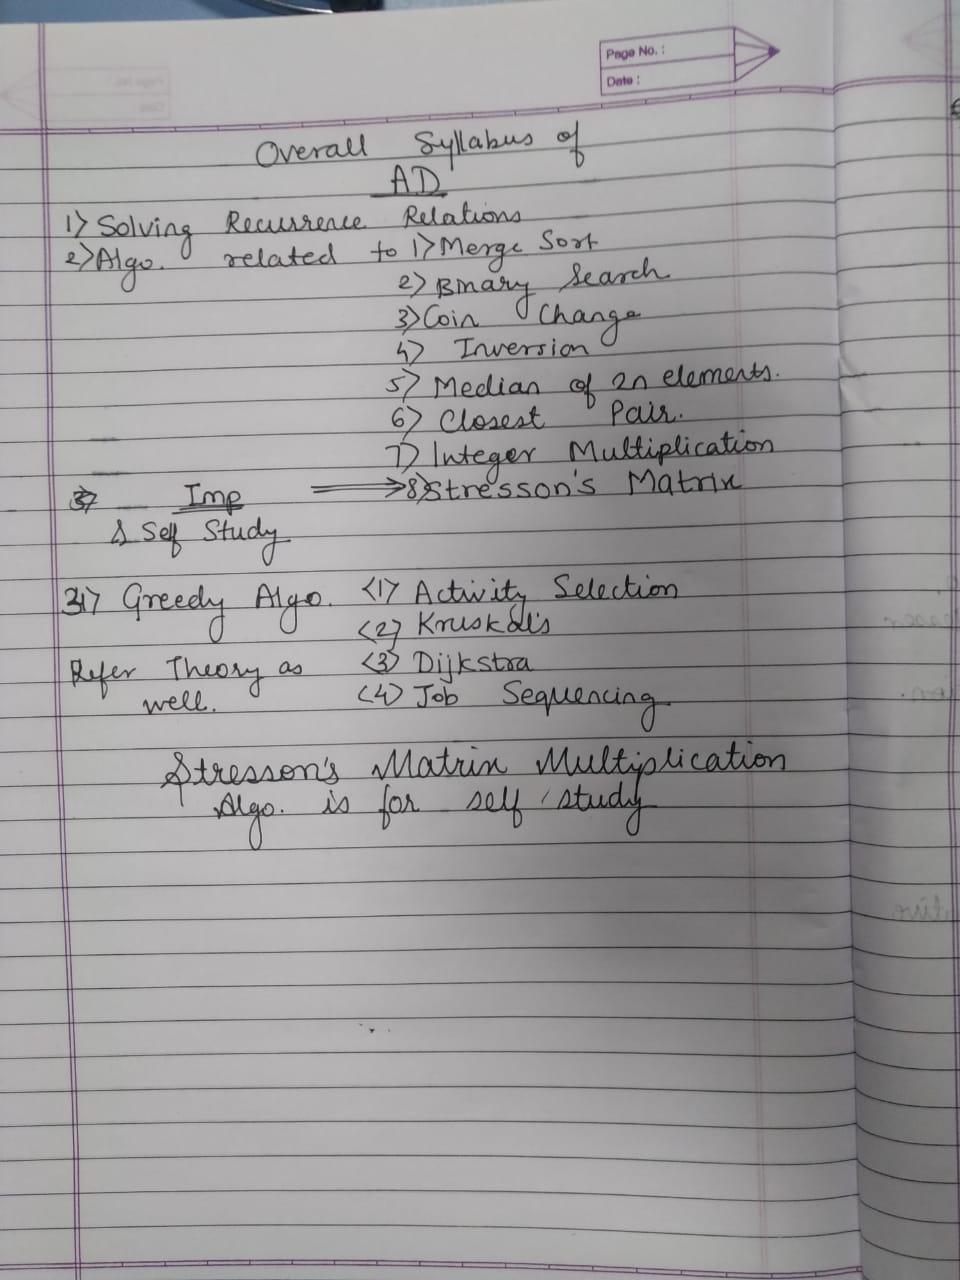 Page No. :
Date :
Overall Syllabus of
AD
1) Solving Recurrence Relations
2) Algo. related to 1) Merge Sort
2) Binary Search
3) Coin Change
4) Inversion
5) Median of 2n elements.
6) Closest Pair.
7) Integer Multiplication
Imp ⟹ 8) Stresson's Matrix
& Self Study
3) Greedy Algo. <1> Activity Selection
<2> Kruskal's
Refer Theory as <3> Dijkstra
well. <4> Job Sequencing
Stresson's Matrix Multiplication
Algo. is for self study